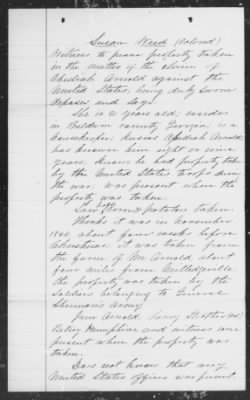 Susan Weed (Colored)
Witness to prove property taken
in the matter of the claim of
Obediah Arnold against the
United States, being duly sworn
deposes and says.
She is years old, resides
in Baldwin county Georgia, is a
housekeeper, knows Obediah Arnold,
has known him eight or nine
years. Knows he had property taken
by the United States troops during
the war, was present when the
property was taken.
Saw Corn & potatoes taken.
Thinks it was in November
1864 about four weeks before
Christmas: it was taken from
the farm of Mr. Arnold about
four miles from Milledgeville
the property was taken by the
Soldiers belonging to General
Sherman's Army.
Jane Arnold,
Humphries and witness were
present when the property was
taken.
Does not know that any
United States officer was present